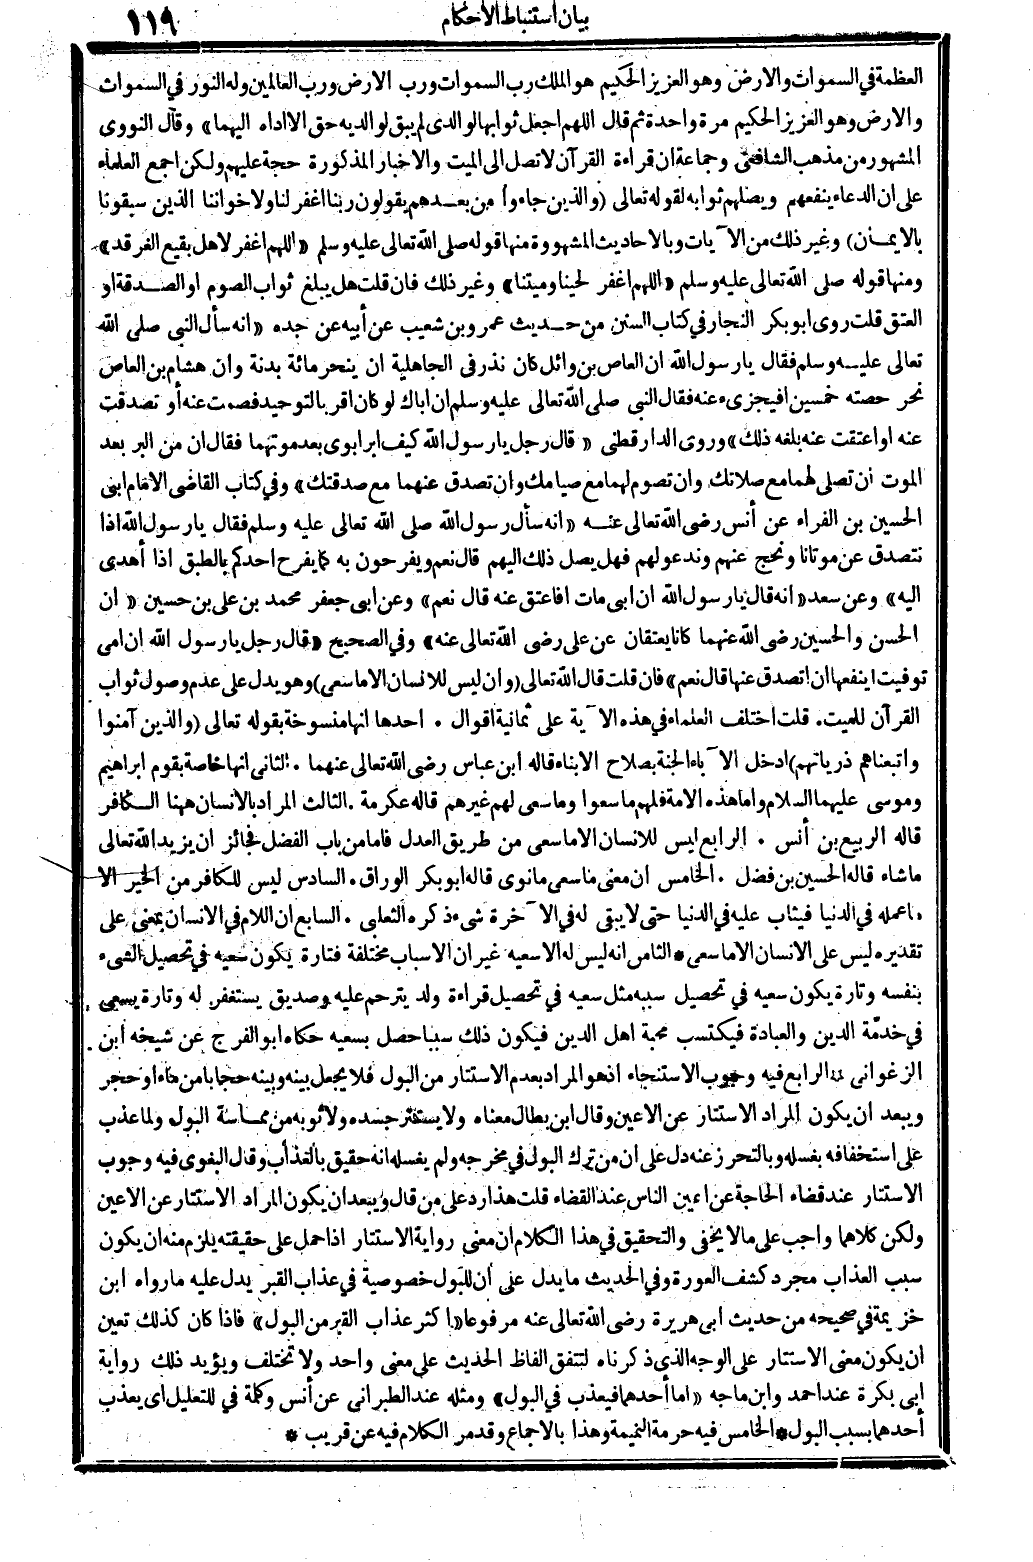 بيان استنباط الأحكام
١١٩
العظمة في السموات والارض وهو العزيز الحكيم هو الملك رب السموات ورب الارض ورب العالمين وله النور في السموات
والارض وهو العزيز الحكيم مرة واحدة ثم قال اللهم اجعل ثوابها لوالدى لم يبق لوالديه حق الا اداه اليهما» وقال النووى
المشهور من مذهب الشافعى وجماعة ان قراءة القرآن لا تصل الى الميت والاخبار المذكورة حجة عليهم ولكن اجمع العلماء
على ان الدعاء ينفعهم ويصلهم ثوابه لقوله تعالى (والذين جاءوا من بعدهم يقولون ربنا اغفر لنا ولاخواننا الذين سبقونا
بالايمان) وغير ذلك من الآيات وبالاحاديث المشهورة منها قوله صلى الله تعالى عليه وسلم «اللهم اغفر لاهل بقيع الغرقد»
ومنها قوله صلى الله تعالى عليه وسلم «اللهم اغفر لحينا وميتنا» وغير ذلك فان قلت هل يبلغ ثواب الصوم او الصدقة او
العتق قلت روى ابو بكر النجار في كتاب السنن من حديث عمرو بن شعيب عن أبيه عن جده «انه سأل النبى صلى الله
تعالى عليه وسلم فقال يا رسول الله ان العاص بن وائل كان نذر فى الجاهلية ان ينحر مائة بدنة وان هشام بن العاص
نحر حصته خمسين افيجزىء عنه فقال النبى صلى الله تعالى عليه وسلم ان اباك لو كان اقر بالتوحيد فصمت عنه أو تصدقت
عنه او اعتقت عنه بلغه ذلك» وروى الدارقطنى « قال رجل يا رسول الله كيف ابر ابوى بعد موتهما فقال ان من البر بعد
الموت أن تصلى لهما مع صلاتك وان تصوم لهما مع صيامك وان تصدق عنهما مع صدقتك» وفي كتاب القاضى الامام ابى
الحسين بن الفراء عن أنس رضى الله تعالى عنه «انه سأل رسول الله صلى الله تعالى عليه وسلم فقال يا رسول الله اذا
نتصدق عن موتانا ونحج عنهم وندعو لهم فهل يصل ذلك اليهم قال نعم ويفرحون به كما يفرح احدكم بالطبق اذا أهدى
اليه» وعن سعد« انه قال يا رسول الله ان ابى مات افاعتق عنه قال نعم» وعن ابى جعفر محمد بن على بن حسين « ان
الحسن والحسين رضى الله عنهما كانا يعتقان عن على رضى الله تعالى عنه» وفي الصحيح «قال رجل يا رسول الله ان امى
توفيت اينفعها ان اتصدق عنها قال نعم» فان قلت قال الله تعالى (وأن ليس للانسان الا ما سعى) وهو يدل على عدم وصول ثواب
القرآن للميت. قلت اختلف العلماء في هذه الآية على ثمانية اقوال . احدها انها منسوخة بقوله تعالى (والذين آمنوا
واتبعناهم ذرياتهم) ادخل الآباء الجنة بصلاح الابناء قاله ابن عباس رضى الله تعالى عنهما . الثانى انها خاصة بقوم ابراهيم
وموسى عليهما السلام واما هذه الامة فلهم ما سعوا وما سعى لهم غيرهم قاله عكرمة . الثالث المراد بالانسان ههنا الكافر
قاله الربيع بن أنس . الرابع ليس للانسان الا ما سعى من طريق العدل فاما من باب الفضل فجائز ان يزيد الله تعالى
ما شاء قاله الحسين بن فضل . الخامس ان معنى ما سعى ما نوى قاله ابو بكر الوراق . السادس ليس للكافر من الخير الا
ما عمله في الدنيا فيثاب عليه في الدنيا حتى لا يبقى له في الآخرة شىء ذكره الثعلبى . السابع ان اللام في الانسان بمعنى على
تقديره ليس على الانسان الا ما سعى * الثامن انه ليس له الا سعيه غير ان الاسباب مختلفة فتارة يكون سعيه في تحصيل الشىء
بنفسه وتارة يكون سعيه في تحصيل سببه مثل سعيه في تحصيل قراءة ولد يترحم عليه وصديق يستغفر له وتارة يسعى
في خدمة الدين والعبادة فيكتسب محبة اهل الدين فيكون ذلك سببا حصل بسعيه حكاه ابو الفرج عن شيخه ابن
الزغوانى * الرابع فيه وجوب الاستنجاء اذ هو المراد بعدم الاستتار من البول فلا يجعل بينه وبينه حجابا من ماء او حجر
ويبعد ان يكون المراد الاستتار عن الاعين وقال ابن بطال معناه ولا يستتر جسده ولا ثوبه من مماسة البول ولما عذب
على استخفافه بغسله وبالتحرز عنه دل على ان من ترك البول في مخرجه ولم يغسله انه حقيق بالعذاب وقال البغوى فيه وجوب
الاستتار عند قضاء الحاجة عن اعين الناس عند القضاء قلت هذا رد على من قال ويبعد ان يكون المراد الاستتار عن الاعين
ولكن كلاهما واجب على ما لا يخفى والتحقيق في هذا الكلام ان معنى رواية الاستتار اذا حمل على حقيقته يلزم منه ان يكون
سبب العذاب مجرد كشف العورة وفي الحديث ما يدل على أن للبول خصوصية في عذاب القبر يدل عليه ما رواه ابن
خزيمة في صحيحه من حديث ابى هريرة رضى الله تعالى عنه مرفوعا «اكثر عذاب القبر من البول» فاذا كان كذلك تعين
ان يكون معنى الاستتار على الوجه الذى ذكرناه لتتفق الفاظ الحديث على معنى واحد ولا تختلف ويؤيد ذلك رواية
ابى بكرة عند احمد وابن ماجه «اما أحدهما فيعذب في البول» ومثله عند الطبرانى عن أنس وكلمة في للتعليل اى يعذب
أحدهما بسبب البول * الخامس فيه حرمة النميمة وهذا بالاجماع وقد مر الكلام فيه عن قريب *